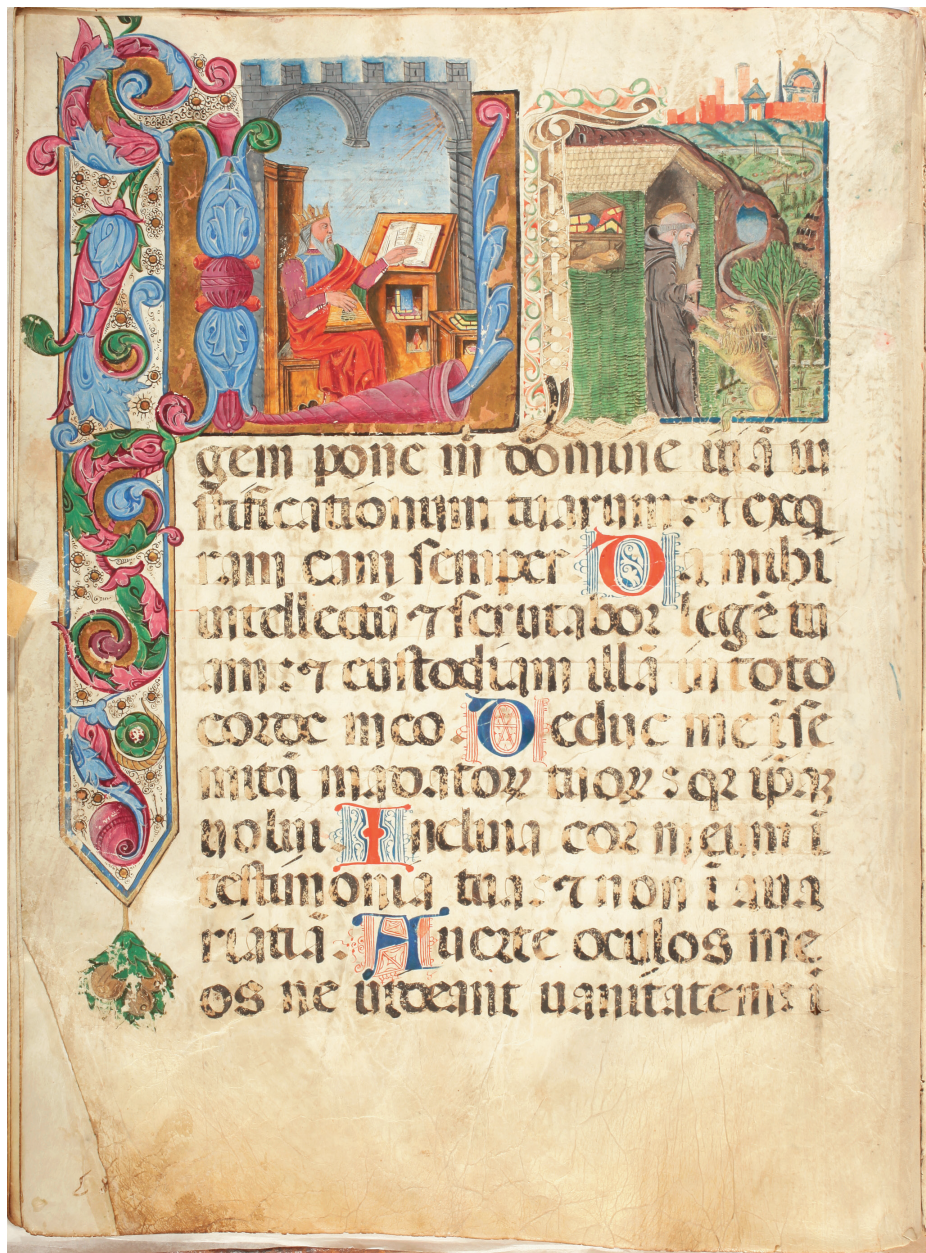 LE
gem pone m̄ domine uiā iu
stificationum tuarum : ⁊ exq
ram eam semper Da mihi
intellectū ⁊ scrutabor legē tu
am : ⁊ custodiam illā in toto
corde meo . Deduc me ī se
mitā mādatoꝝ tuoꝝ : qꝛ ip̄aꝫ
uolui . Inclina cor meum ī
testimonia tua : ⁊ non ī aua
ritiā . Auerte oculos me
os ne uideant uanitatem : ī